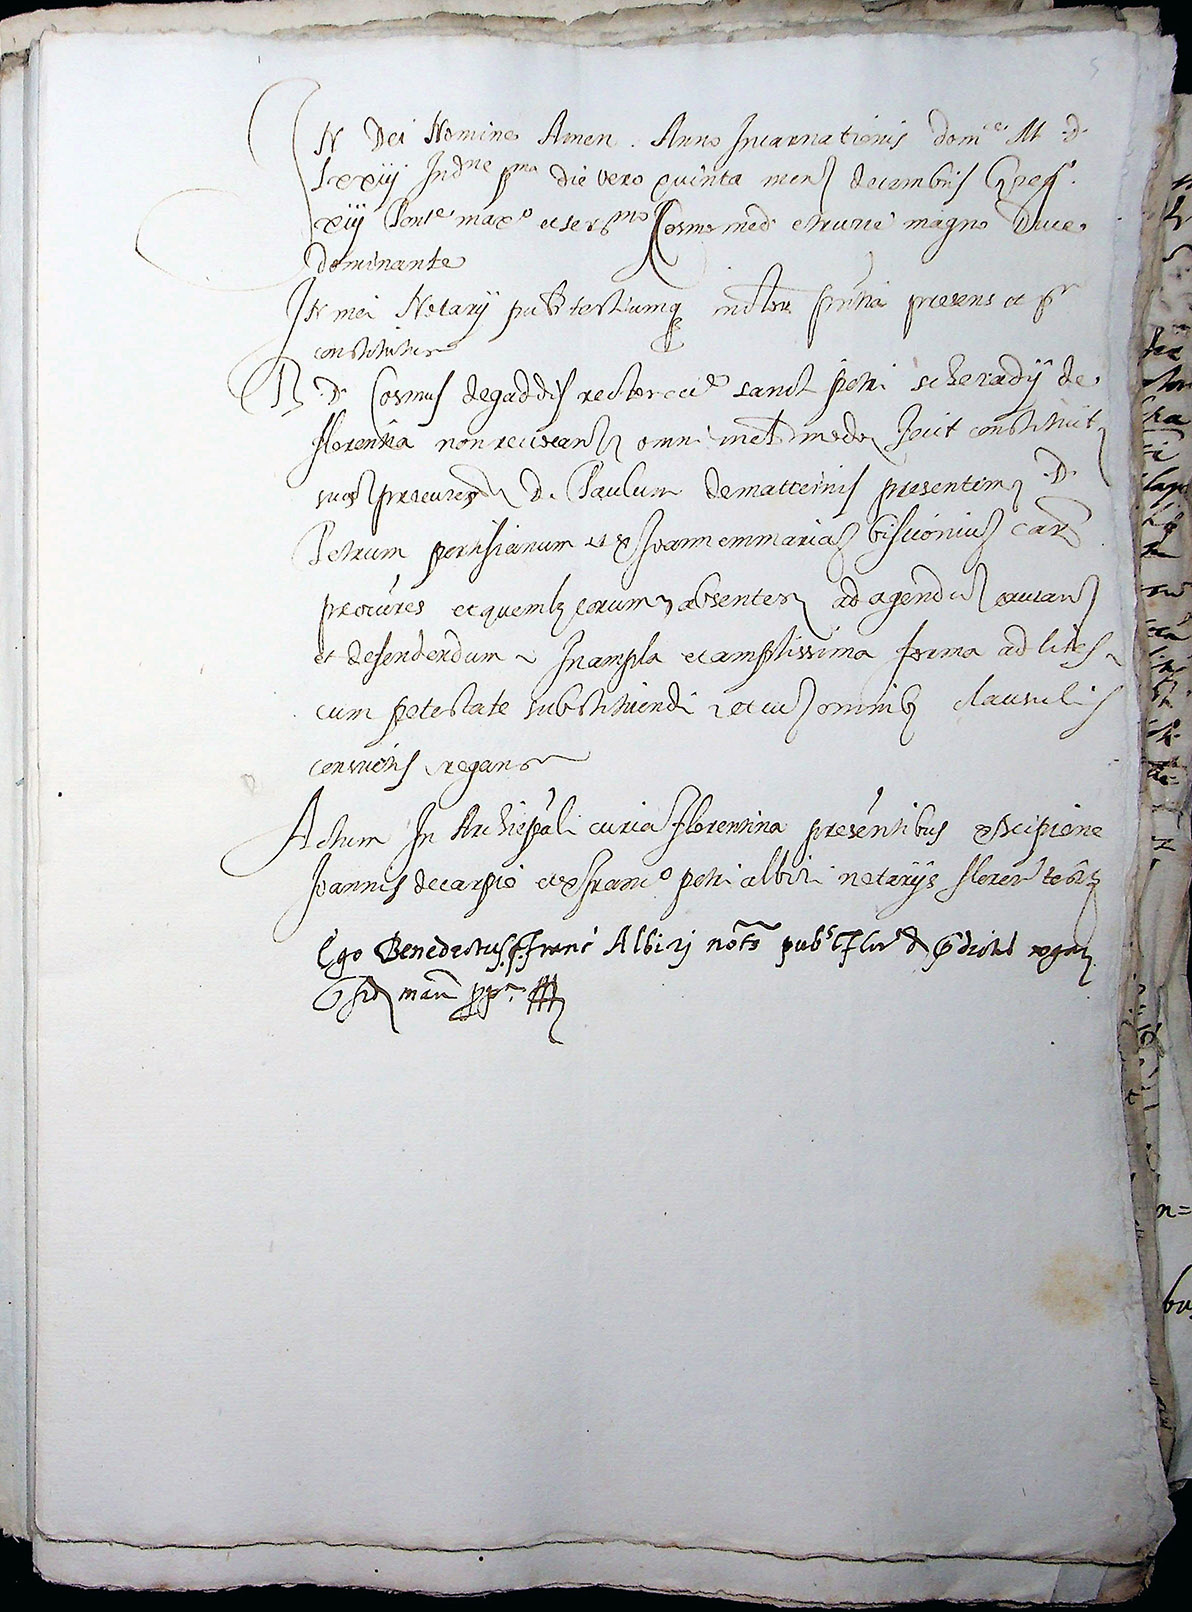 5
IN Dei Nomine Amen. Anno Incarnationis dom.e M.D.
Lxxiij Ind.ne p.ma die vero quinta mens decembris Greg.o
xiij Pont.e max.o et ser.mo Cosmo med etrurie magno Duce
dominante
IN mei Notarij pub testiumq presentia presens et
constitutus
R. D. Cosmus degaddis rector sanct petri scheradij de
florentia non revocans omni mel modo fecit constituit
suos procures D. Paulum dematteinis presentem D.
Petrum portisianum et Joannemmaria
procures et quemlz eorum absentes ad agendu causans
et defendendum In ampla et amplissima forma ad lites
cum potestate substituendi et cu omnib clausulis
consuetis rogans
Actum In Archiepali curia florentina presentibus Scipione
Joannis decarpio et franc.o petri albizi notarijs floren testibz
Ego Benedictus franc Albizj not.s pub.s flor.s de pdictis rogat
fid man ppa